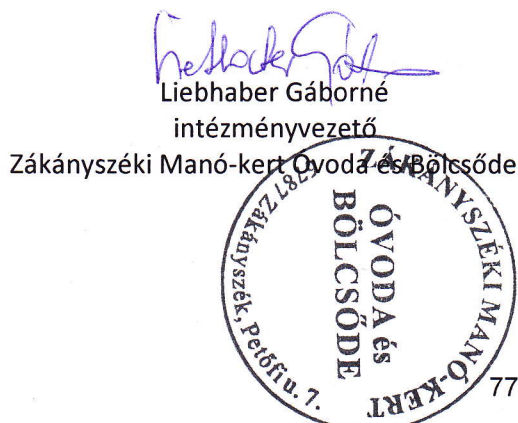 Liebhaber Gáborné
intézményvezető
Zákányszéki Manó-kert Óvoda és Bölcsőde
ZÁKÁNYSZÉKI MANÓ-KERT
ÓVODA és
BÖLCSŐDE
6787 Zákányszék, Petőfi u. 7.
77